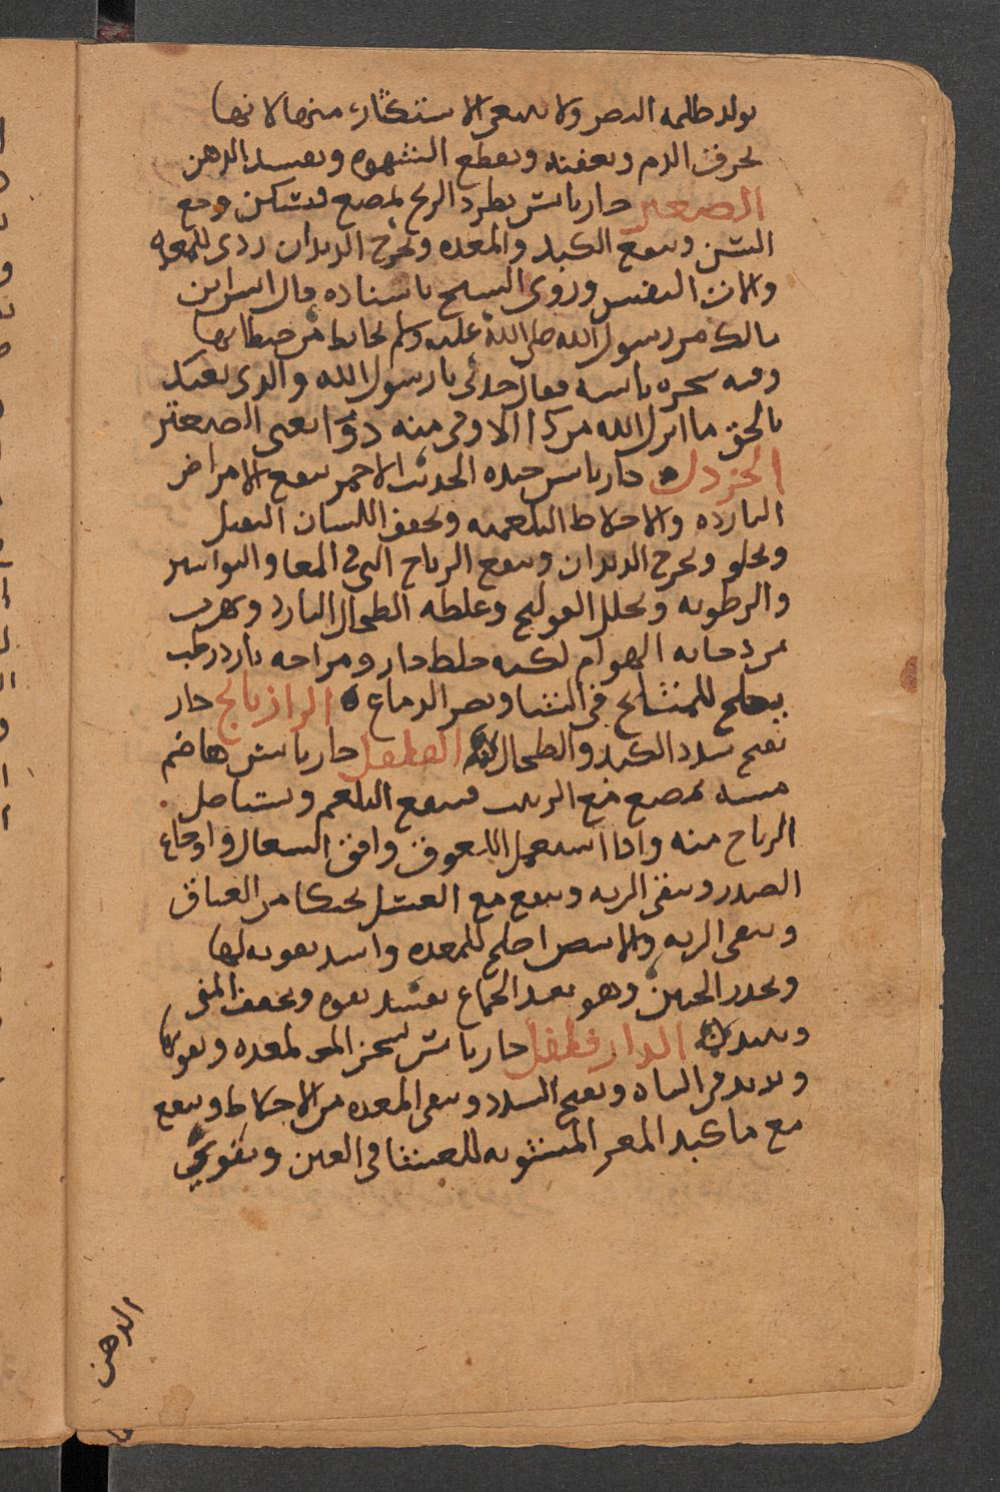 يولد ظلمة البصر ولا ينبغي الاستكثار منها لانها
تحرق الدم وتعفنه وتقطع الشهوه وتفسد الذهن
الصعتر حار يابس يطرد الريح يمضغ فيسكن وجع
السن وينفع الكبد والمعده ويخرج الديدان ردى للمعده
والات النفس وروى الشيخ باسناده قال انس ابن
مالك مر رسول الله صلى الله عليه وسلم بحايط من حيطانها
وفيه شجره يابسه فقال خذنى يارسول الله والذى بعثك
بالحق ما انزل الله من دا الا وفى منه دوا يعنى الصعتر
الخردل حار يابس جيده الحديث الاحمر ينفع الامراض
البارده والاخلاط البلغميه ويخفف اللسان الثقيل
ويجلو ويخرج الديدان وينفع الرياح التى فى المعا والبواسير
والرطوبه ويحلل القولنج وغلظه الطحال البارد ويهرب
من دخانه الهوام لكنه خلط حار ومزاجه بارد رطب
يصلح للمشايخ فى الشتا ويضر الدماغ الرازيانج حار
يفتح سدد الكبد والطحال الفلفل حار يابس هاضم
منه يمضغ مع الزبيب فيقلع البلغم ويستاصل
الرياح منه واذا استعمل اللعوق وافق السعال واوجاع
الصدر وينقى الريه وينفع مع العسل تحنكا من الخناق
وينقى الريه والابيض اصلح للمعده واشد تقويه لها
ويحدر الجنين وهو بعد الجماع يفسد بقوه ويجفف المنى
الدار فلفل حار يابس يسخن المعده ويقويها
ويزيد فى الباه ويفتح السدد وينقى المعده من الاخلاط وينفع
مع ما كبد المعز المشويه للعشا فى العين ويقوى
الدهن